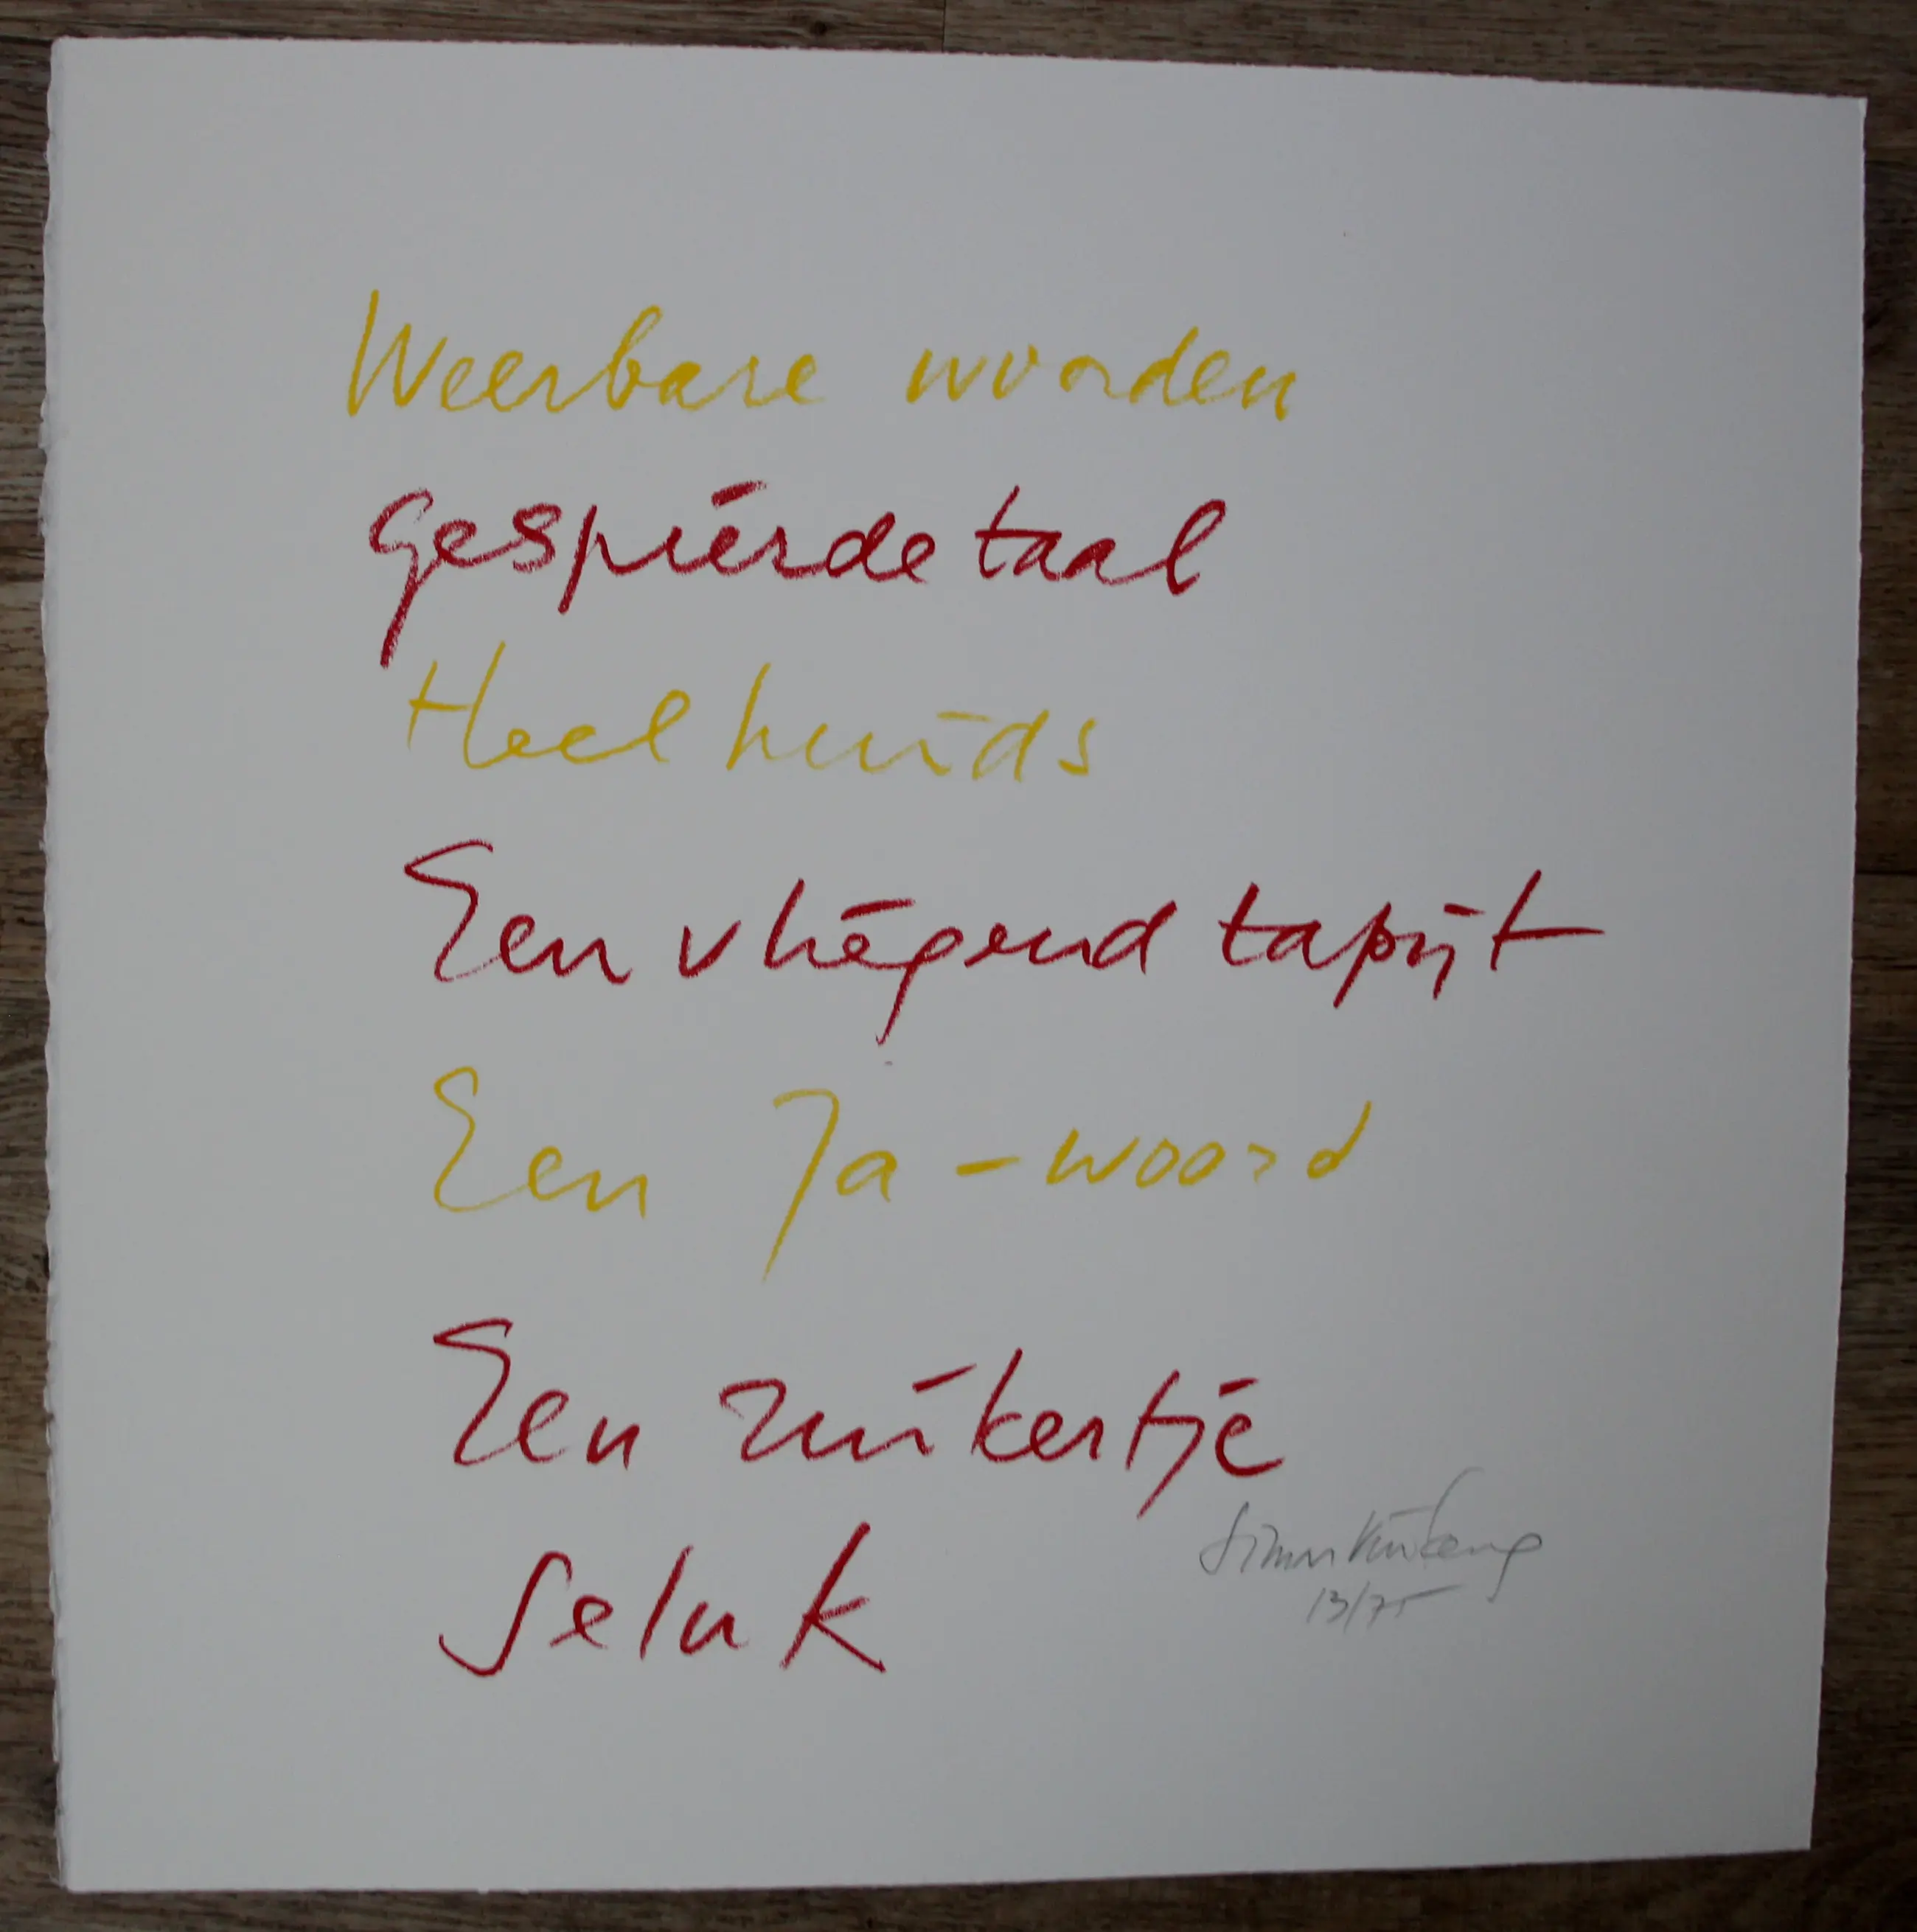 Weerbare woorden
gespierde taal
Heelhuids
Een vliegend tapijt
Een Ja-woord
Een zuikertje
geluk
Simon Vinkenoog
13/75